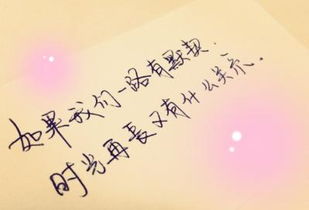 如果我们一路有默契；
时光再长又有什么关系．